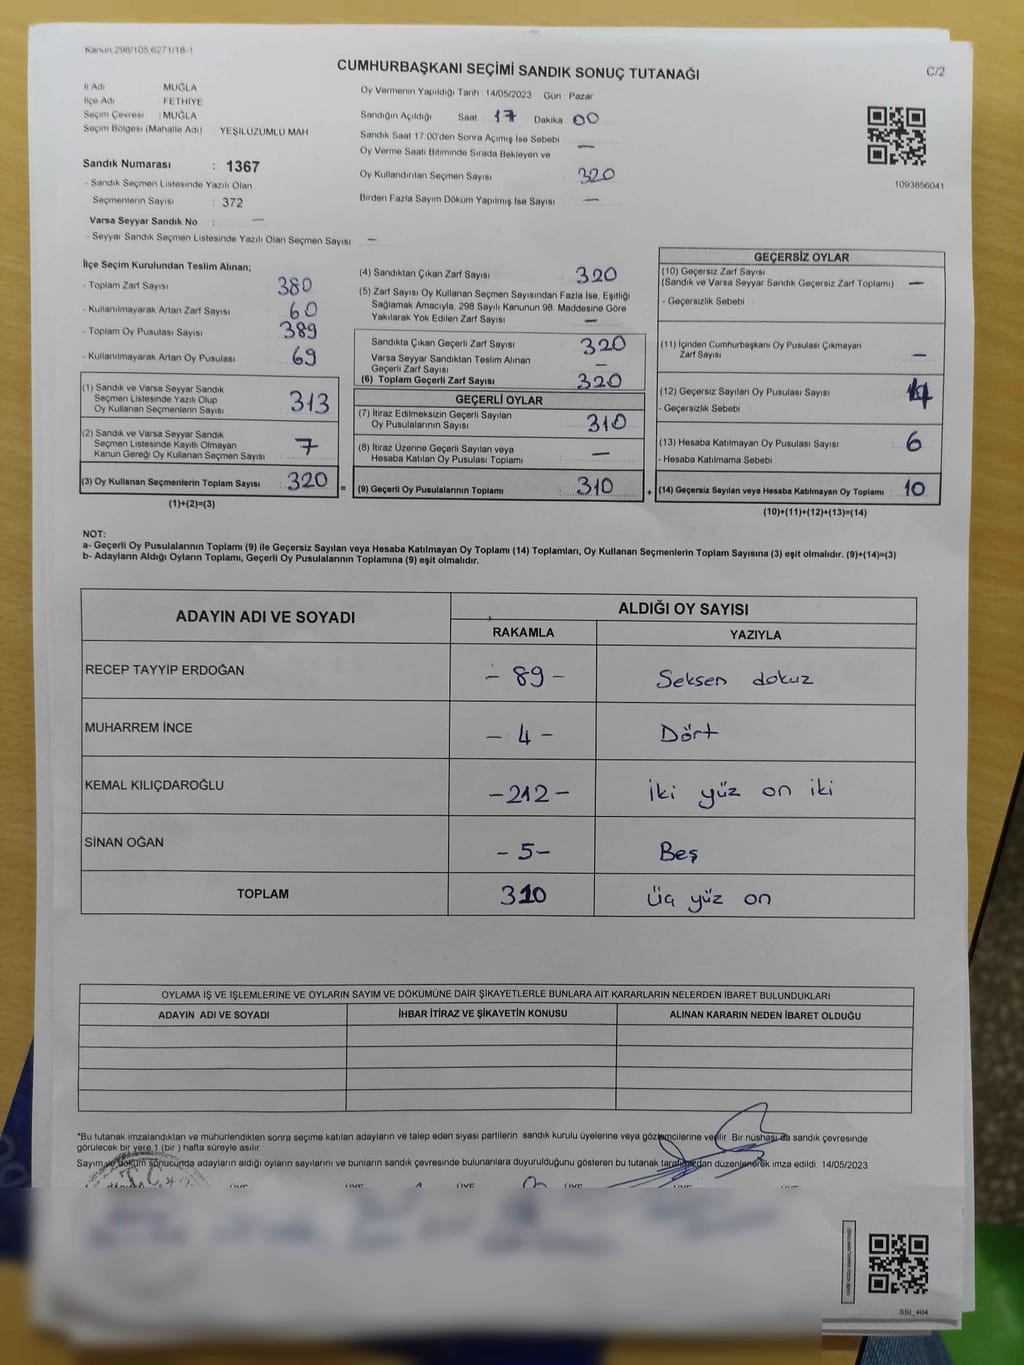 Kanun:298/105,6271/18-1
CUMHURBAŞKANI SEÇİMİ SANDIK SONUÇ TUTANAĞI
C/2
İl Adı MUĞLA
İlçe Adı FETHİYE
Seçim Çevresi : MUĞLA
Seçim Bölgesi (Mahalle Adı) : YEŞİLÜZÜMLÜ MAH
Sandık Numarası : 1367
- Sandık Seçmen Listesinde Yazılı Olan
Seçmenlerin Sayısı : 372
Varsa Seyyar Sandık No : —
- Seyyar Sandık Seçmen Listesinde Yazılı Olan Seçmen Sayısı —
Oy Vermenin Yapıldığı Tarih :14/05/2023 Gün : Pazar
Sandığın Açıldığı Saat : 17 Dakika : 00
Sandık Saat 17.00'den Sonra Açımış İse Sebebi
Oy Verme Saati Bitiminde Sırada Bekleyen ve —
Oy Kullandırılan Seçmen Sayısı : 320
Birden Fazla Sayım Döküm Yapılmış İse Sayısı : —
1093856041
İlçe Seçim Kurulundan Teslim Alınan;
- Toplam Zarf Sayısı : 380
- Kullanılmayarak Artan Zarf Sayısı : 60
- Toplam Oy Pusulası Sayısı : 389
- Kullanılmayarak Artan Oy Pusulası : 69
(1) Sandık ve Varsa Seyyar Sandık
Seçmen Listesinde Yazılı Olup
Oy Kullanan Seçmenlerin Sayısı : 313
(2) Sandık ve Varsa Seyyar Sandık
Seçmen Listesinde Kayıtlı Olmayan
Kanun Gereği Oy Kullanan Seçmen Sayısı : 7
(3) Oy Kullanan Seçmenlerin Toplam Sayısı : 320 =
(1)+(2)=(3)
(4) Sandıktan Çıkan Zarf Sayısı : 320
(5) Zarf Sayısı Oy Kullanan Seçmen Sayısından Fazla İse, Eşitliği
Sağlamak Amacıyla, 298 Sayılı Kanunun 98. Maddesine Göre
Yakılarak Yok Edilen Zarf Sayısı : —
Sandıkta Çıkan Geçerli Zarf Sayısı : 320
Varsa Seyyar Sandıktan Teslim Alınan
Geçerli Zarf Sayısı : —
(6) Toplam Geçerli Zarf Sayısı : 320
GEÇERLİ OYLAR
(7) İtiraz Edilmeksizin Geçerli Sayılan
Oy Pusulalarının Sayısı : 310
(8) İtiraz Üzerine Geçerli Sayılan veya
Hesaba Katılan Oy Pusulası Toplamı : —
(9) Geçerli Oy Pusulalarının Toplamı : 310 +
GEÇERSİZ OYLAR
(10) Geçersiz Zarf Sayısı
(Sandık ve Varsa Seyyar Sandık Geçersiz Zarf Toplamı) : —
- Geçersizlik Sebebi :
(11) İçinden Cumhurbaşkanı Oy Pusulası Çıkmayan
Zarf Sayısı : —
(12) Geçersiz Sayılan Oy Pusulası Sayısı : 4
- Geçersizlik Sebebi :
(13) Hesaba Katılmayan Oy Pusulası Sayısı : 6
- Hesaba Katılmama Sebebi :
(14) Geçersiz Sayılan veya Hesaba Katılmayan Oy Toplamı : 10
(10)+(11)+(12)+(13)=(14)
NOT:
a- Geçerli Oy Pusulalarının Toplamı (9) ile Geçersiz Sayılan veya Hesaba Katılmayan Oy Toplamı (14) Toplamları, Oy Kullanan Seçmenlerin Toplam Sayısına (3) eşit olmalıdır. (9)+(14)=(3)
b- Adayların Aldığı Oyların Toplamı, Geçerli Oy Pusulalarının Toplamına (9) eşit olmalıdır.
ADAYIN ADI VE SOYADI
ALDIĞI OY SAYISI
RAKAMLA YAZIYLA
RECEP TAYYİP ERDOĞAN - 89 - Seksen dokuz
MUHARREM İNCE - 4 - Dört
KEMAL KILIÇDAROĞLU -212- İki yüz on iki
SİNAN OĞAN - 5 - Beş
TOPLAM 310 Üç yüz on
OYLAMA İŞ VE İŞLEMLERİNE VE OYLARIN SAYIM VE DÖKÜMÜNE DAİR ŞİKAYETLERLE BUNLARA AİT KARARLARIN NELERDEN İBARET BULUNDUKLARI
ADAYIN ADI VE SOYADI İHBAR İTİRAZ VE ŞİKAYETİN KONUSU ALINAN KARARIN NEDEN İBARET OLDUĞU
*Bu tutanak imzalandıktan ve mühürlendikten sonra seçime katılan adayların ve talep eden siyasi partilerin sandık kurulu üyelerine veya gözlemcilerine verilir. Bir nüshası da sandık çevresinde
görülecek bir yere 1 (bir ) hafta süreyle asılır.
Sayım ve döküm sonucunda adayların aldığı oyların sayılarını ve bunların sandık çevresinde bulunanlara duyurulduğunu gösteren bu tutanak tarafımızdan düzenlenerek imza edildi. 14/05/2023
T.C.
ÜYE ÜYE ÜYE ÜYE ÜYE ÜYE
SSI_404